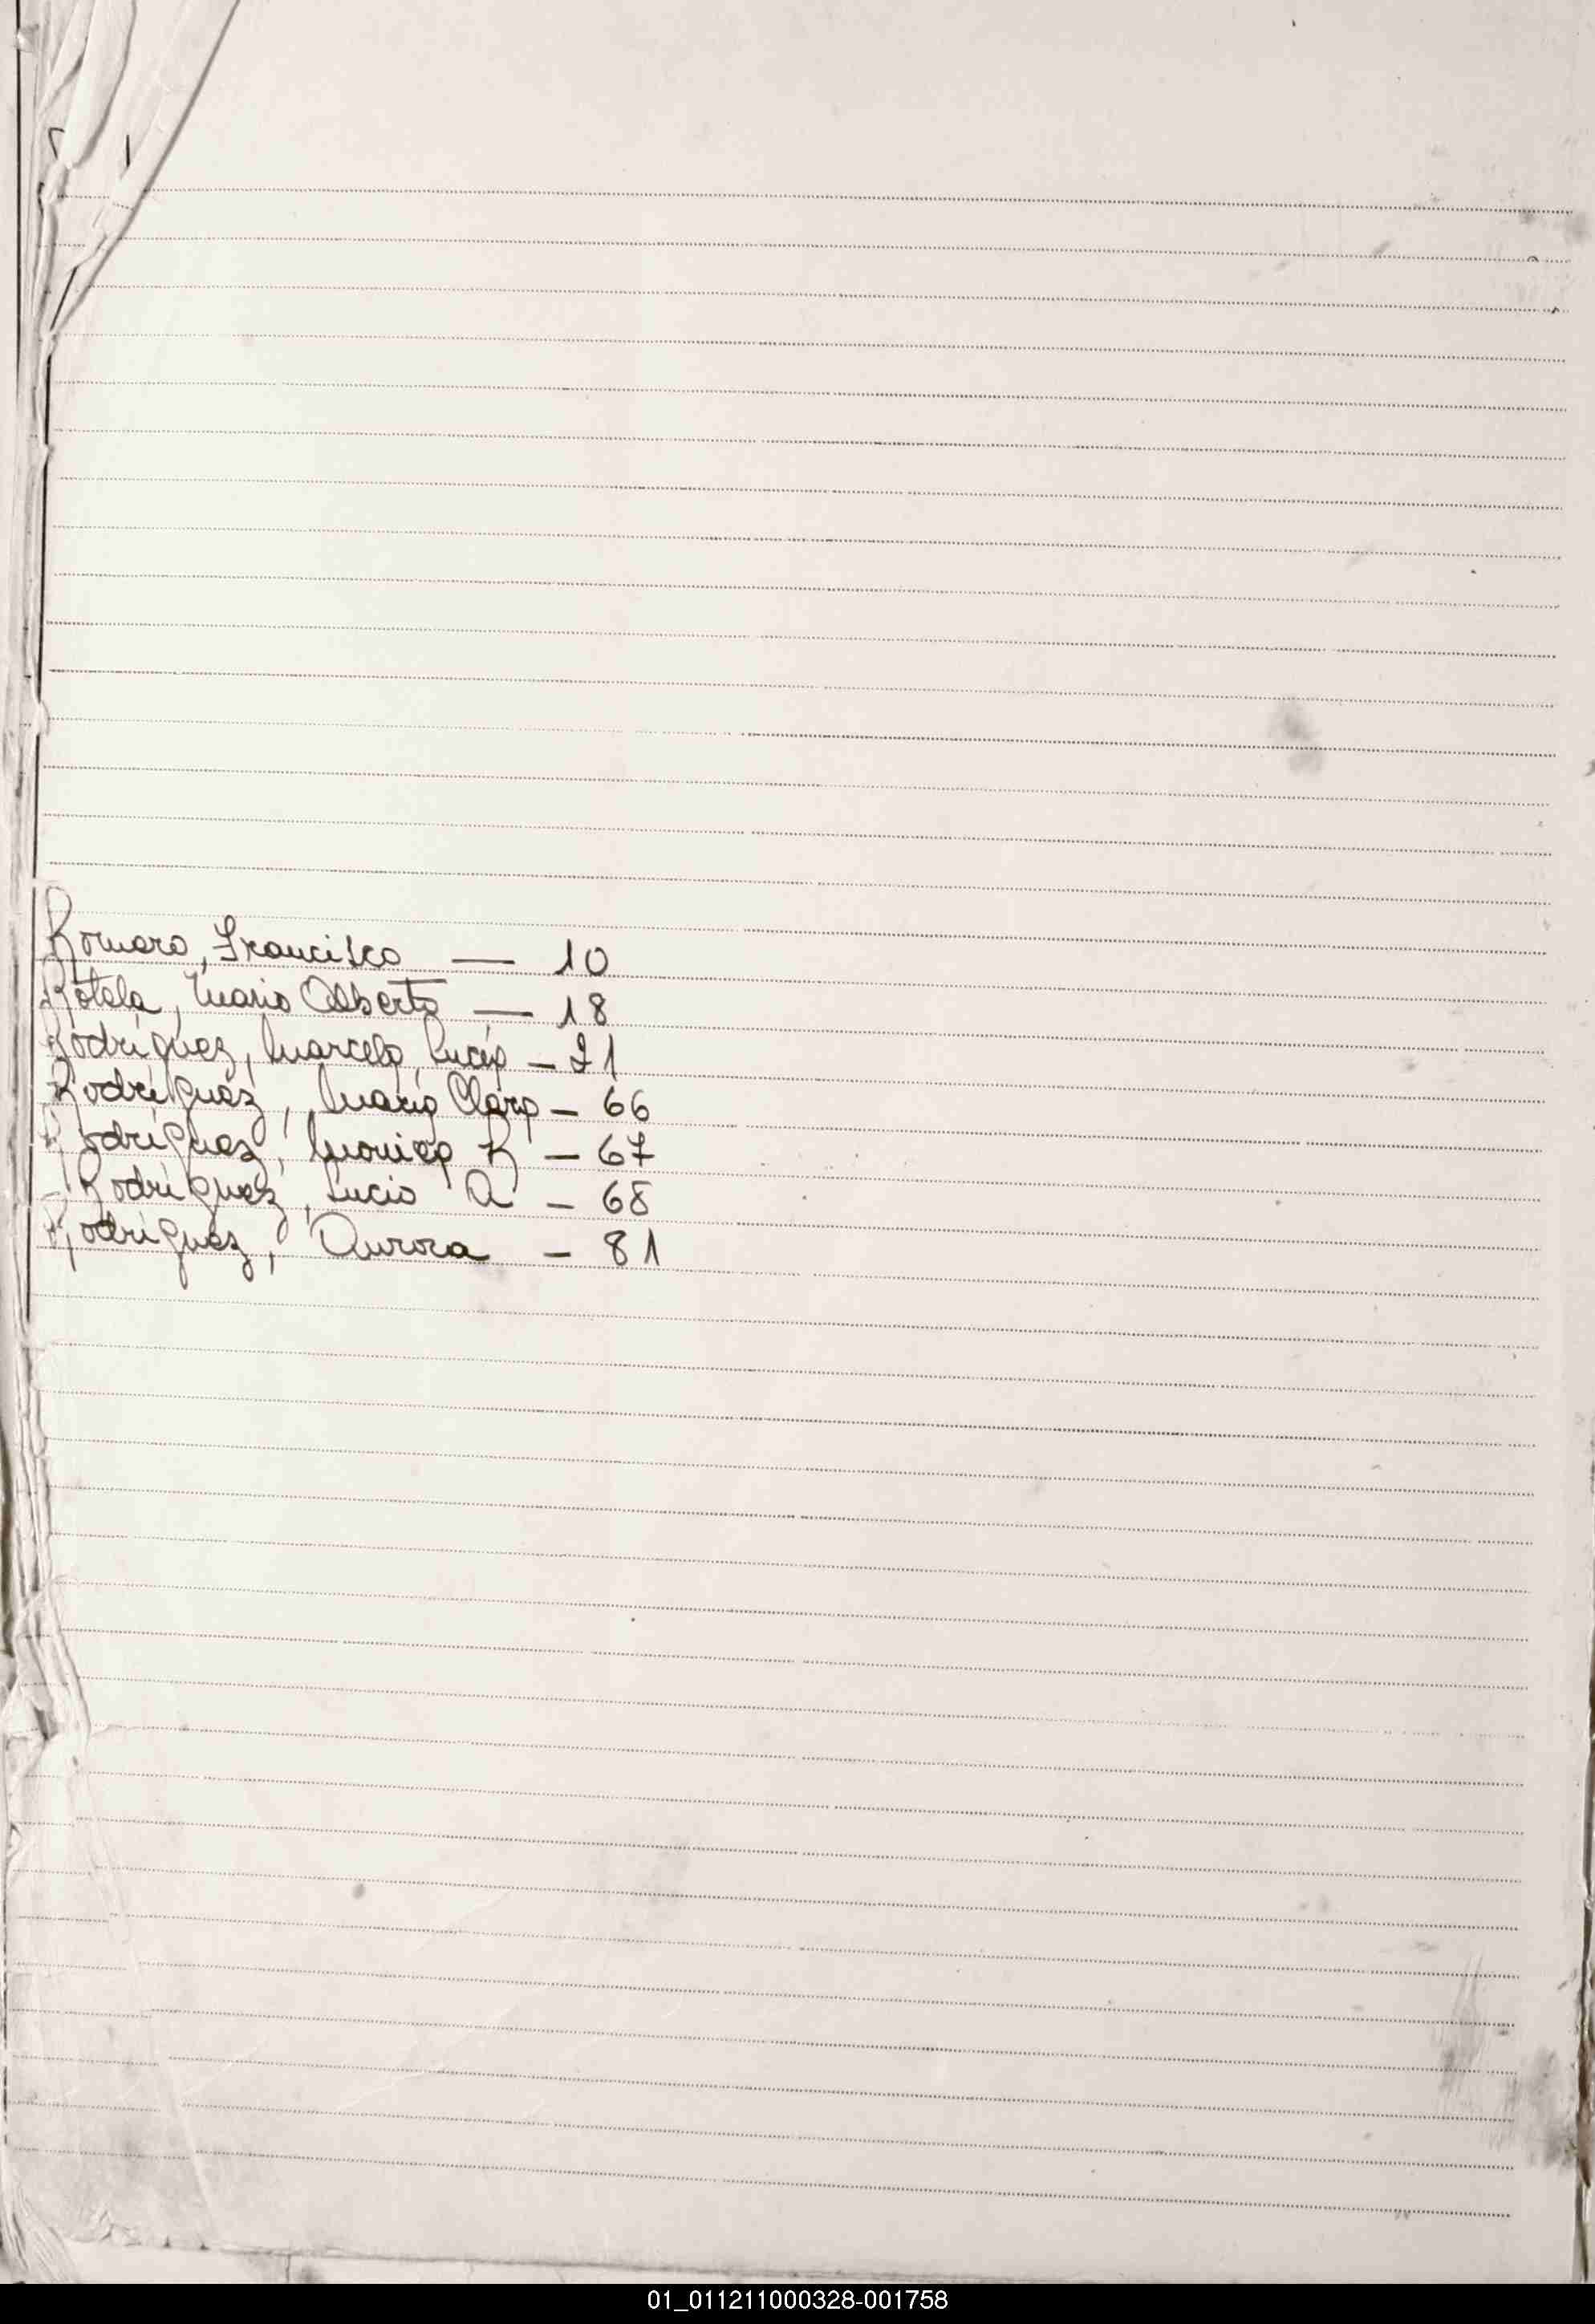 Romero, Francisco — 10
Rotela, Mario Alberto — 18
Rodriguez, Marcela Lucia — 21
Rodriguez, Maria Clara — 66
Rodriguez, Monica R — 67
Rodriguez, Lucio A — 68
Rodriguez, Aurora — 81
01_011211000328-001758